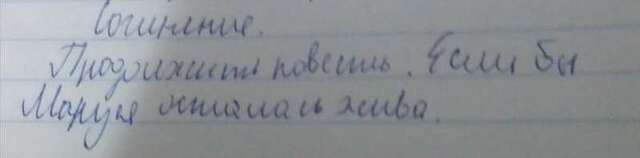 Сочинение.
Продолжить повесть. Если бы
Маруся осталась жива.